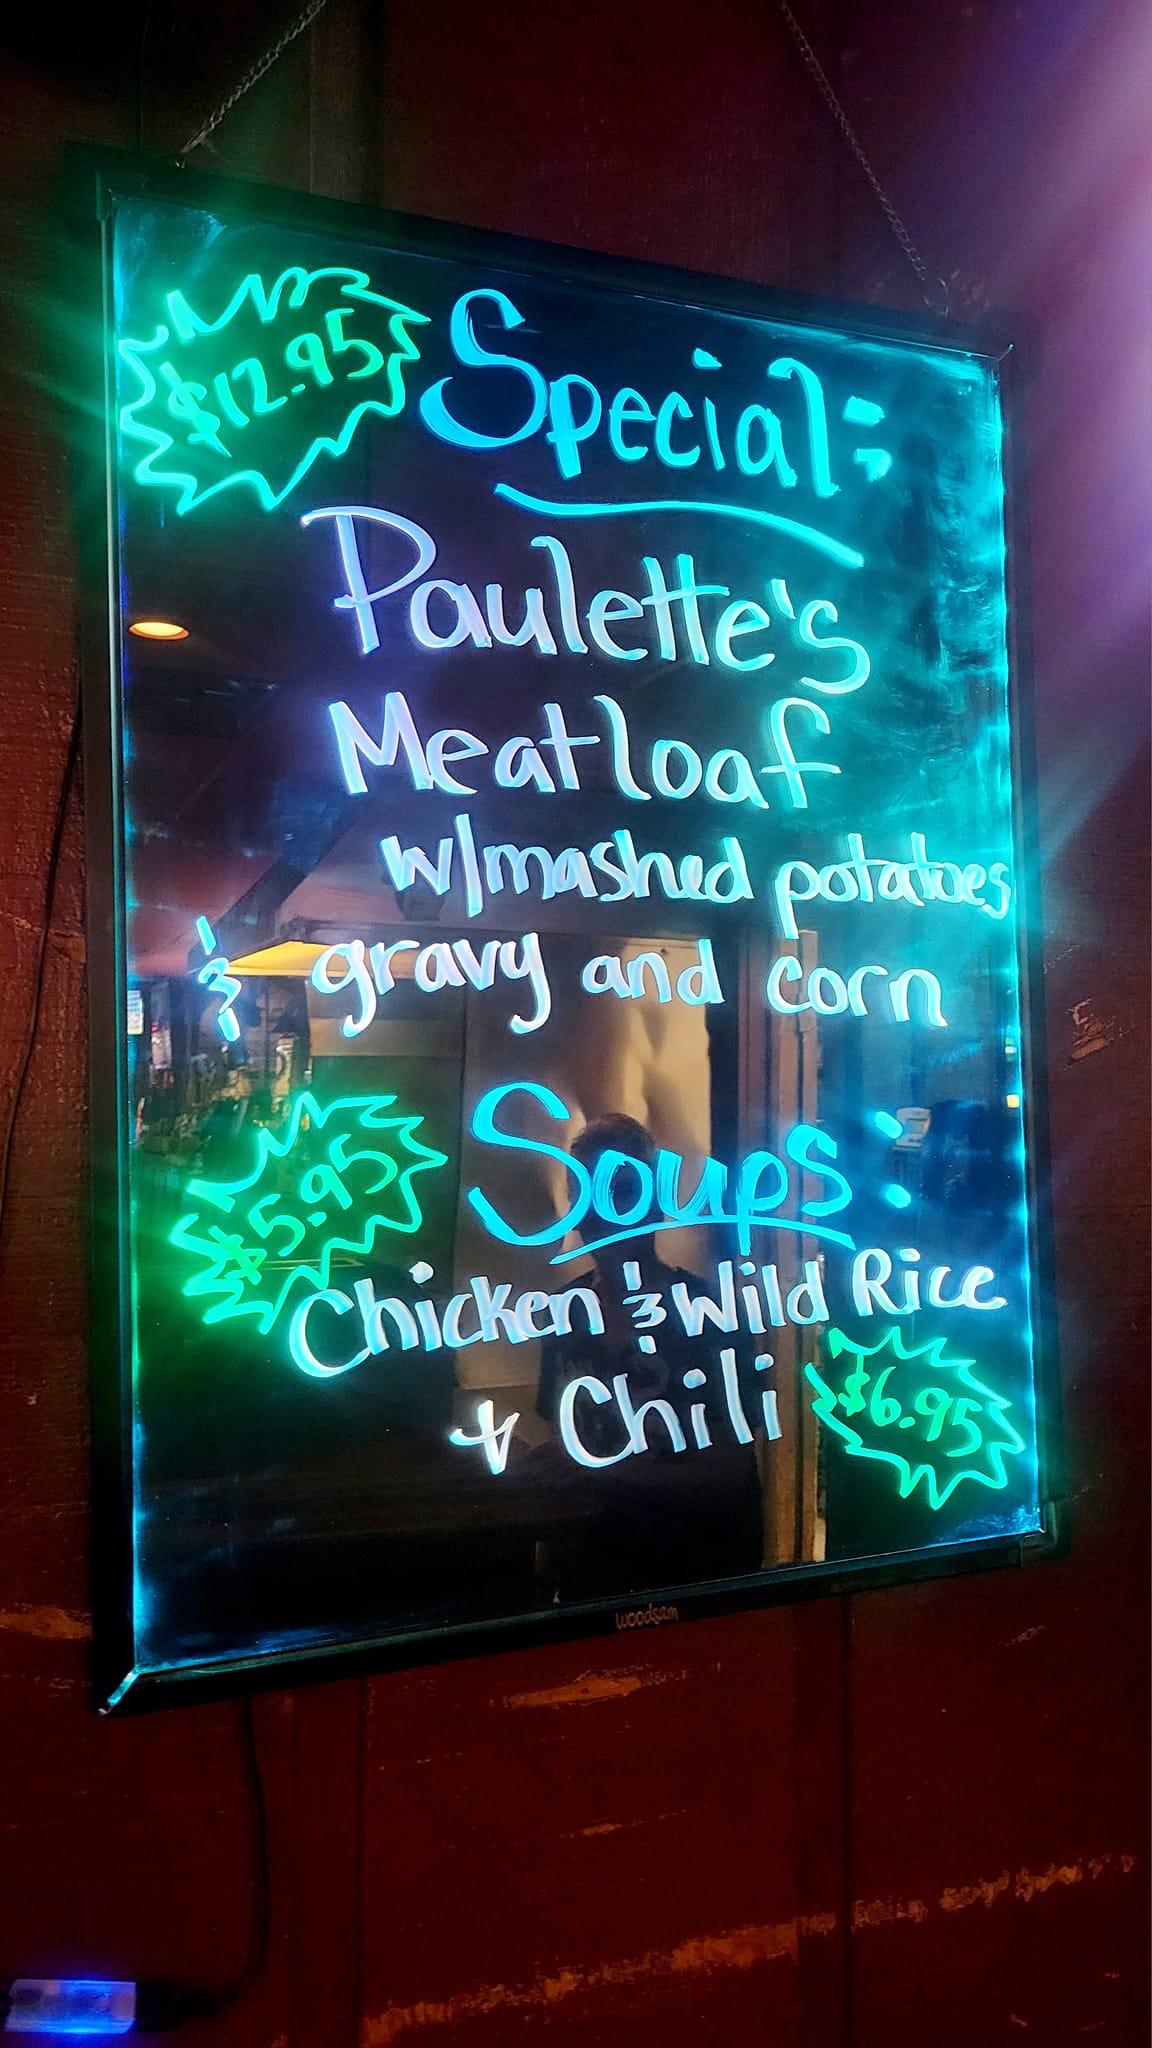 $12.95
Special:
Paulette's
Meatloaf
w/mashed potatoes
& gravy and corn
$5.95
Soups:
Chicken & Wild Rice
+ Chili
$6.95
woodsam